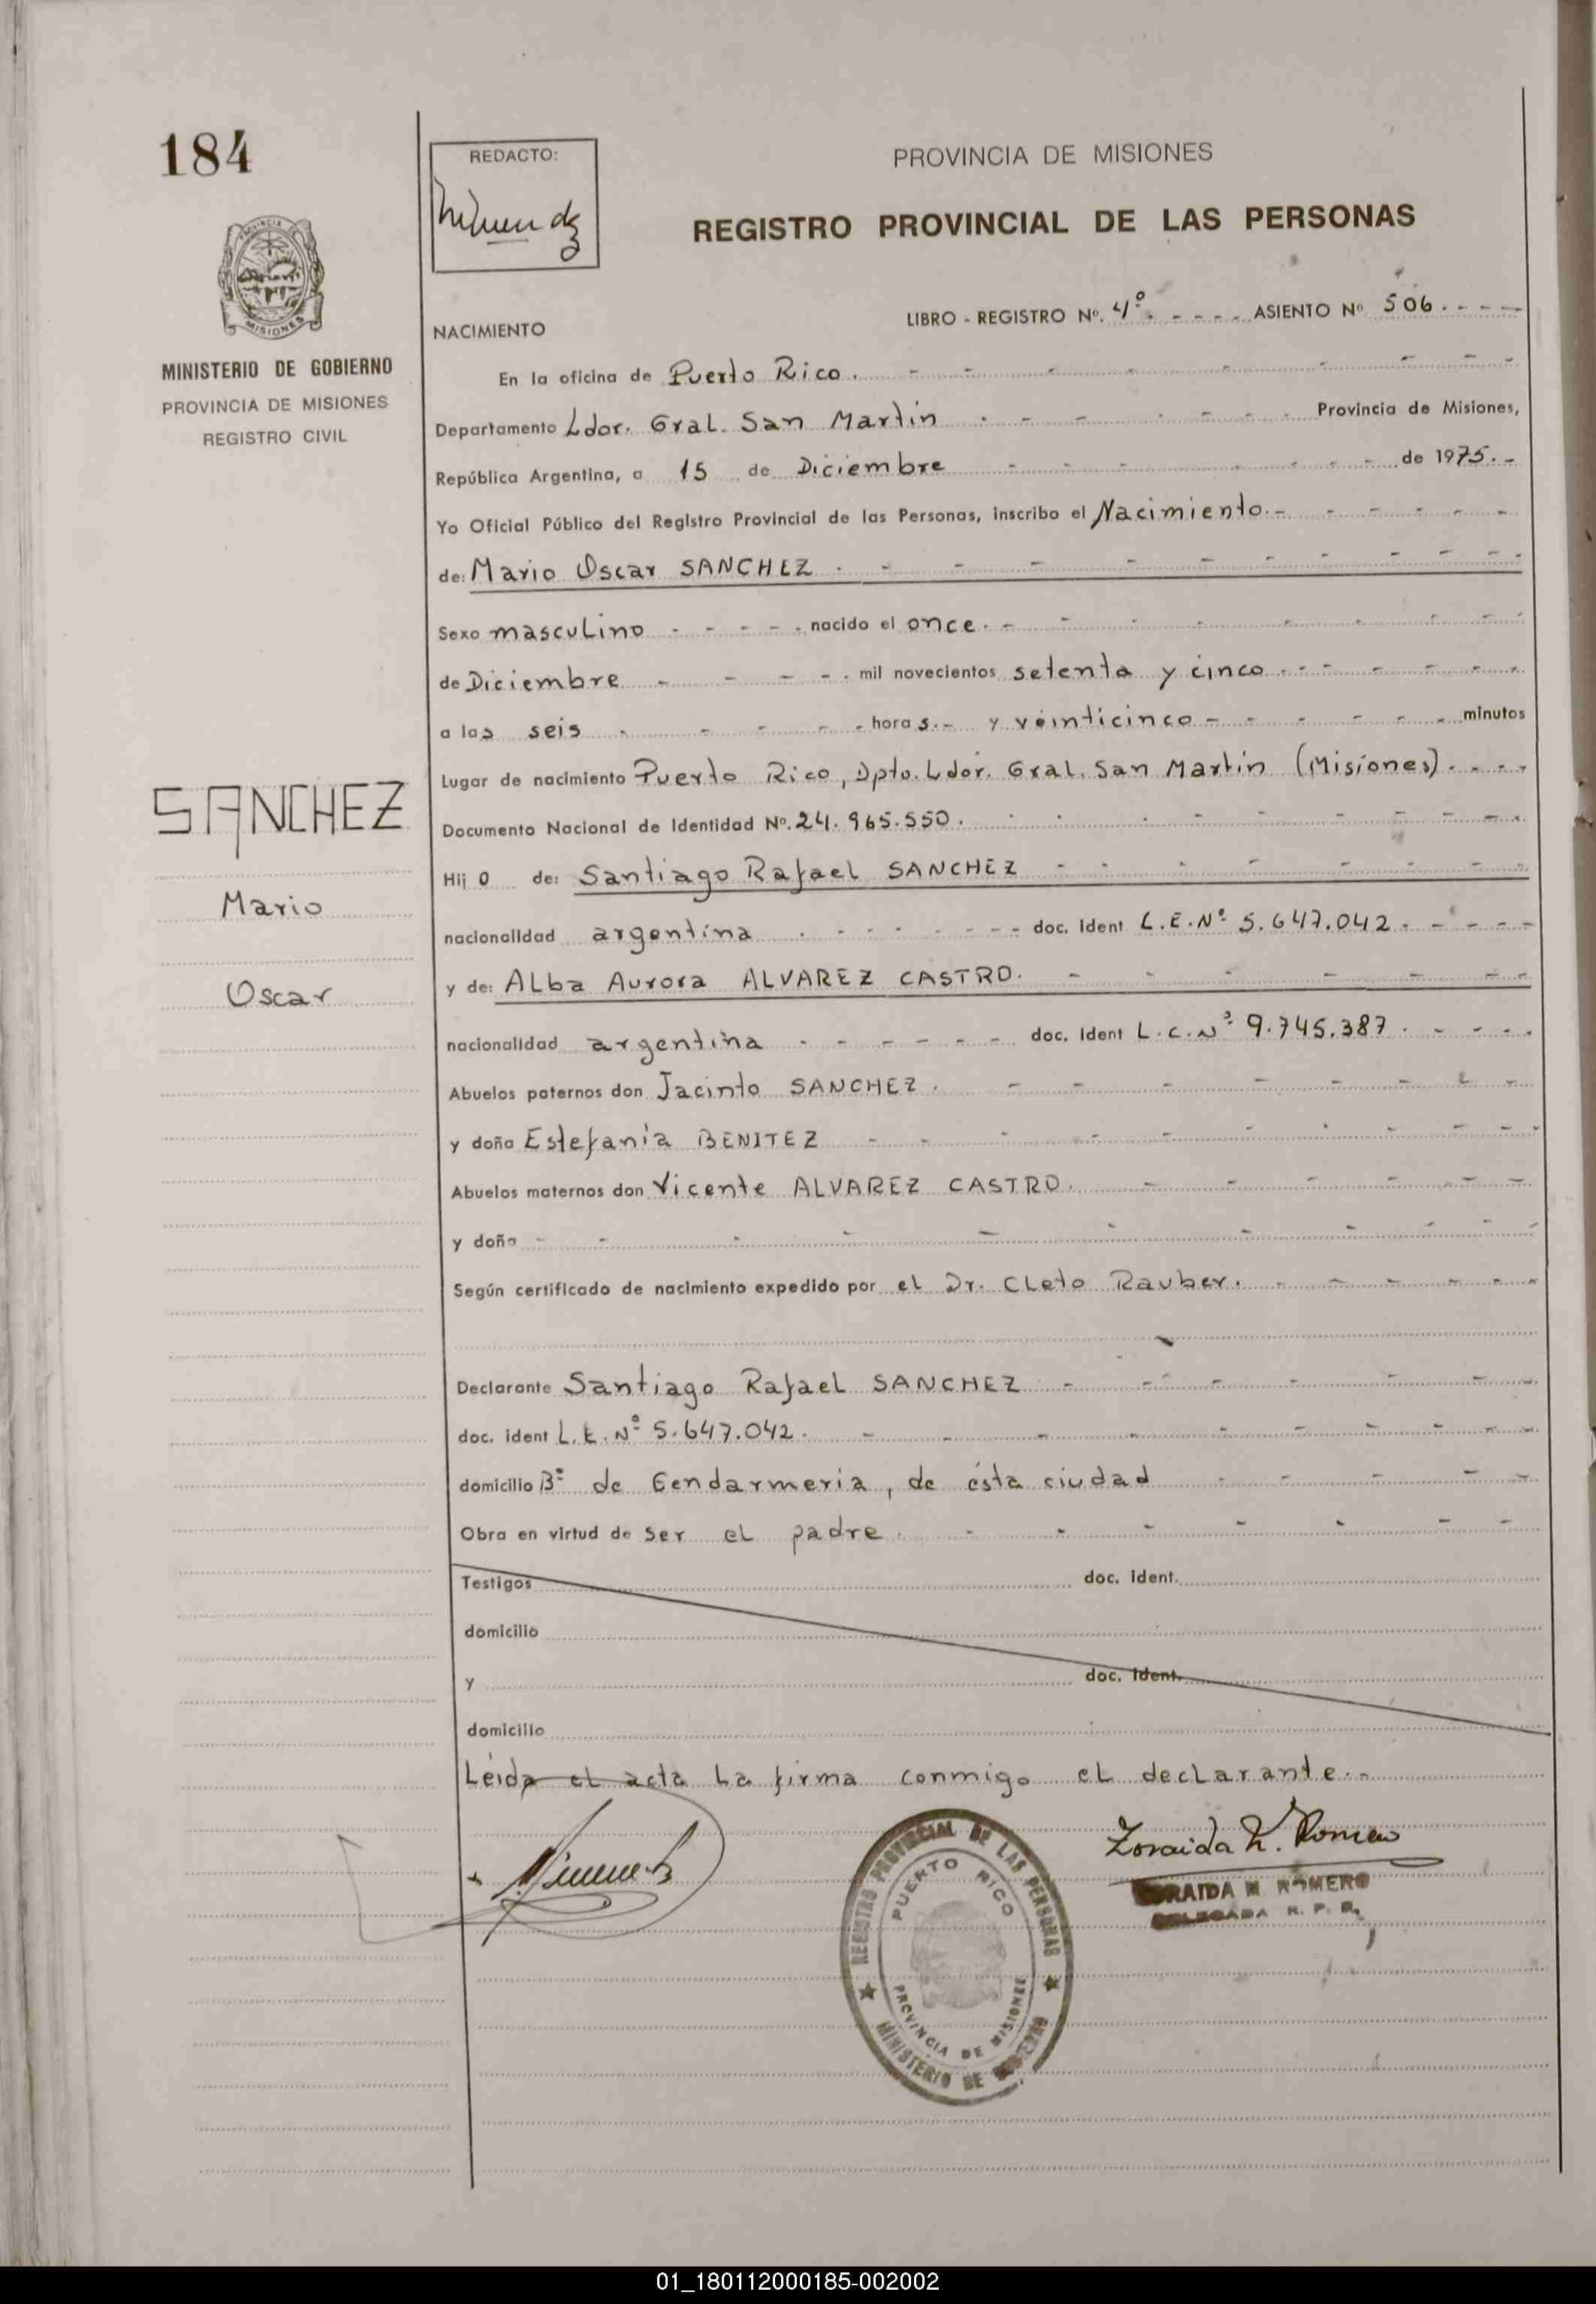 184
REDACTO:
PROVINCIA DE MISIONES
REGISTRO PROVINCIAL DE LAS PERSONAS
MISIONES
MINISTERIO DE GOBIERNO
PROVINCIA DE MISIONES
REGISTRO CIVIL
LIBRO - REGISTRO Nº. 4º. - - - - ASIENTO Nº 506 - - - -
NACIMIENTO
En la oficina de Puerto Rico.
Departamento Ldor. Gral. San Martín Provincia de Misiones,
República Argentina, a 15 de Diciembre de 1975.-
Yo Oficial Público del Registro Provincial de las Personas, inscribo el Nacimiento.-
de: Mario Oscar SANCHEZ
Sexo masculino nacido el once.-
de Diciembre mil novecientos setenta y cinco
a las seis horas.- y veinticinco - minutos
Lugar de nacimiento Puerto Rico, Dpto. Ldor. Gral. San Martín (Misiones).
Documento Nacional de Identidad Nº. 24.965.550.
Hijo de: Santiago Rafael SANCHEZ
nacionalidad argentina doc. Ident L.E.Nº 5.647.042
y de: Alba Aurora ALVAREZ CASTRO.
nacionalidad argentina doc. Ident L.C.Nº 9.745.387.
Abuelos paternos don Jacinto SANCHEZ.
y doña Estefanía BENITEZ
Abuelos maternos don Vicente ALVAREZ CASTRO.
y doña
Según certificado de nacimiento expedido por el Dr. Cleto Rauber.
Declarante Santiago Rafael SANCHEZ
doc. ident L.E. Nº 5.647.042.
domicilio Bº de Gendarmeria, de ésta ciudad
Obra en virtud de ser el padre.
Testigos doc. ident.
domicilio
y doc. ident.
domicilio
Leída el acta la firma conmigo el declarante.-
SANCHEZ
Mario
Oscar
Zoraida M. Romero
ZORAIDA M. ROMERO
DELEGADA R. P. P.
REGISTRO PROVINCIAL DE LAS PERSONAS
PUERTO RICO
PROVINCIA DE MISIONES
MINISTERIO DE GOBIERNO
01_180112000185-002002